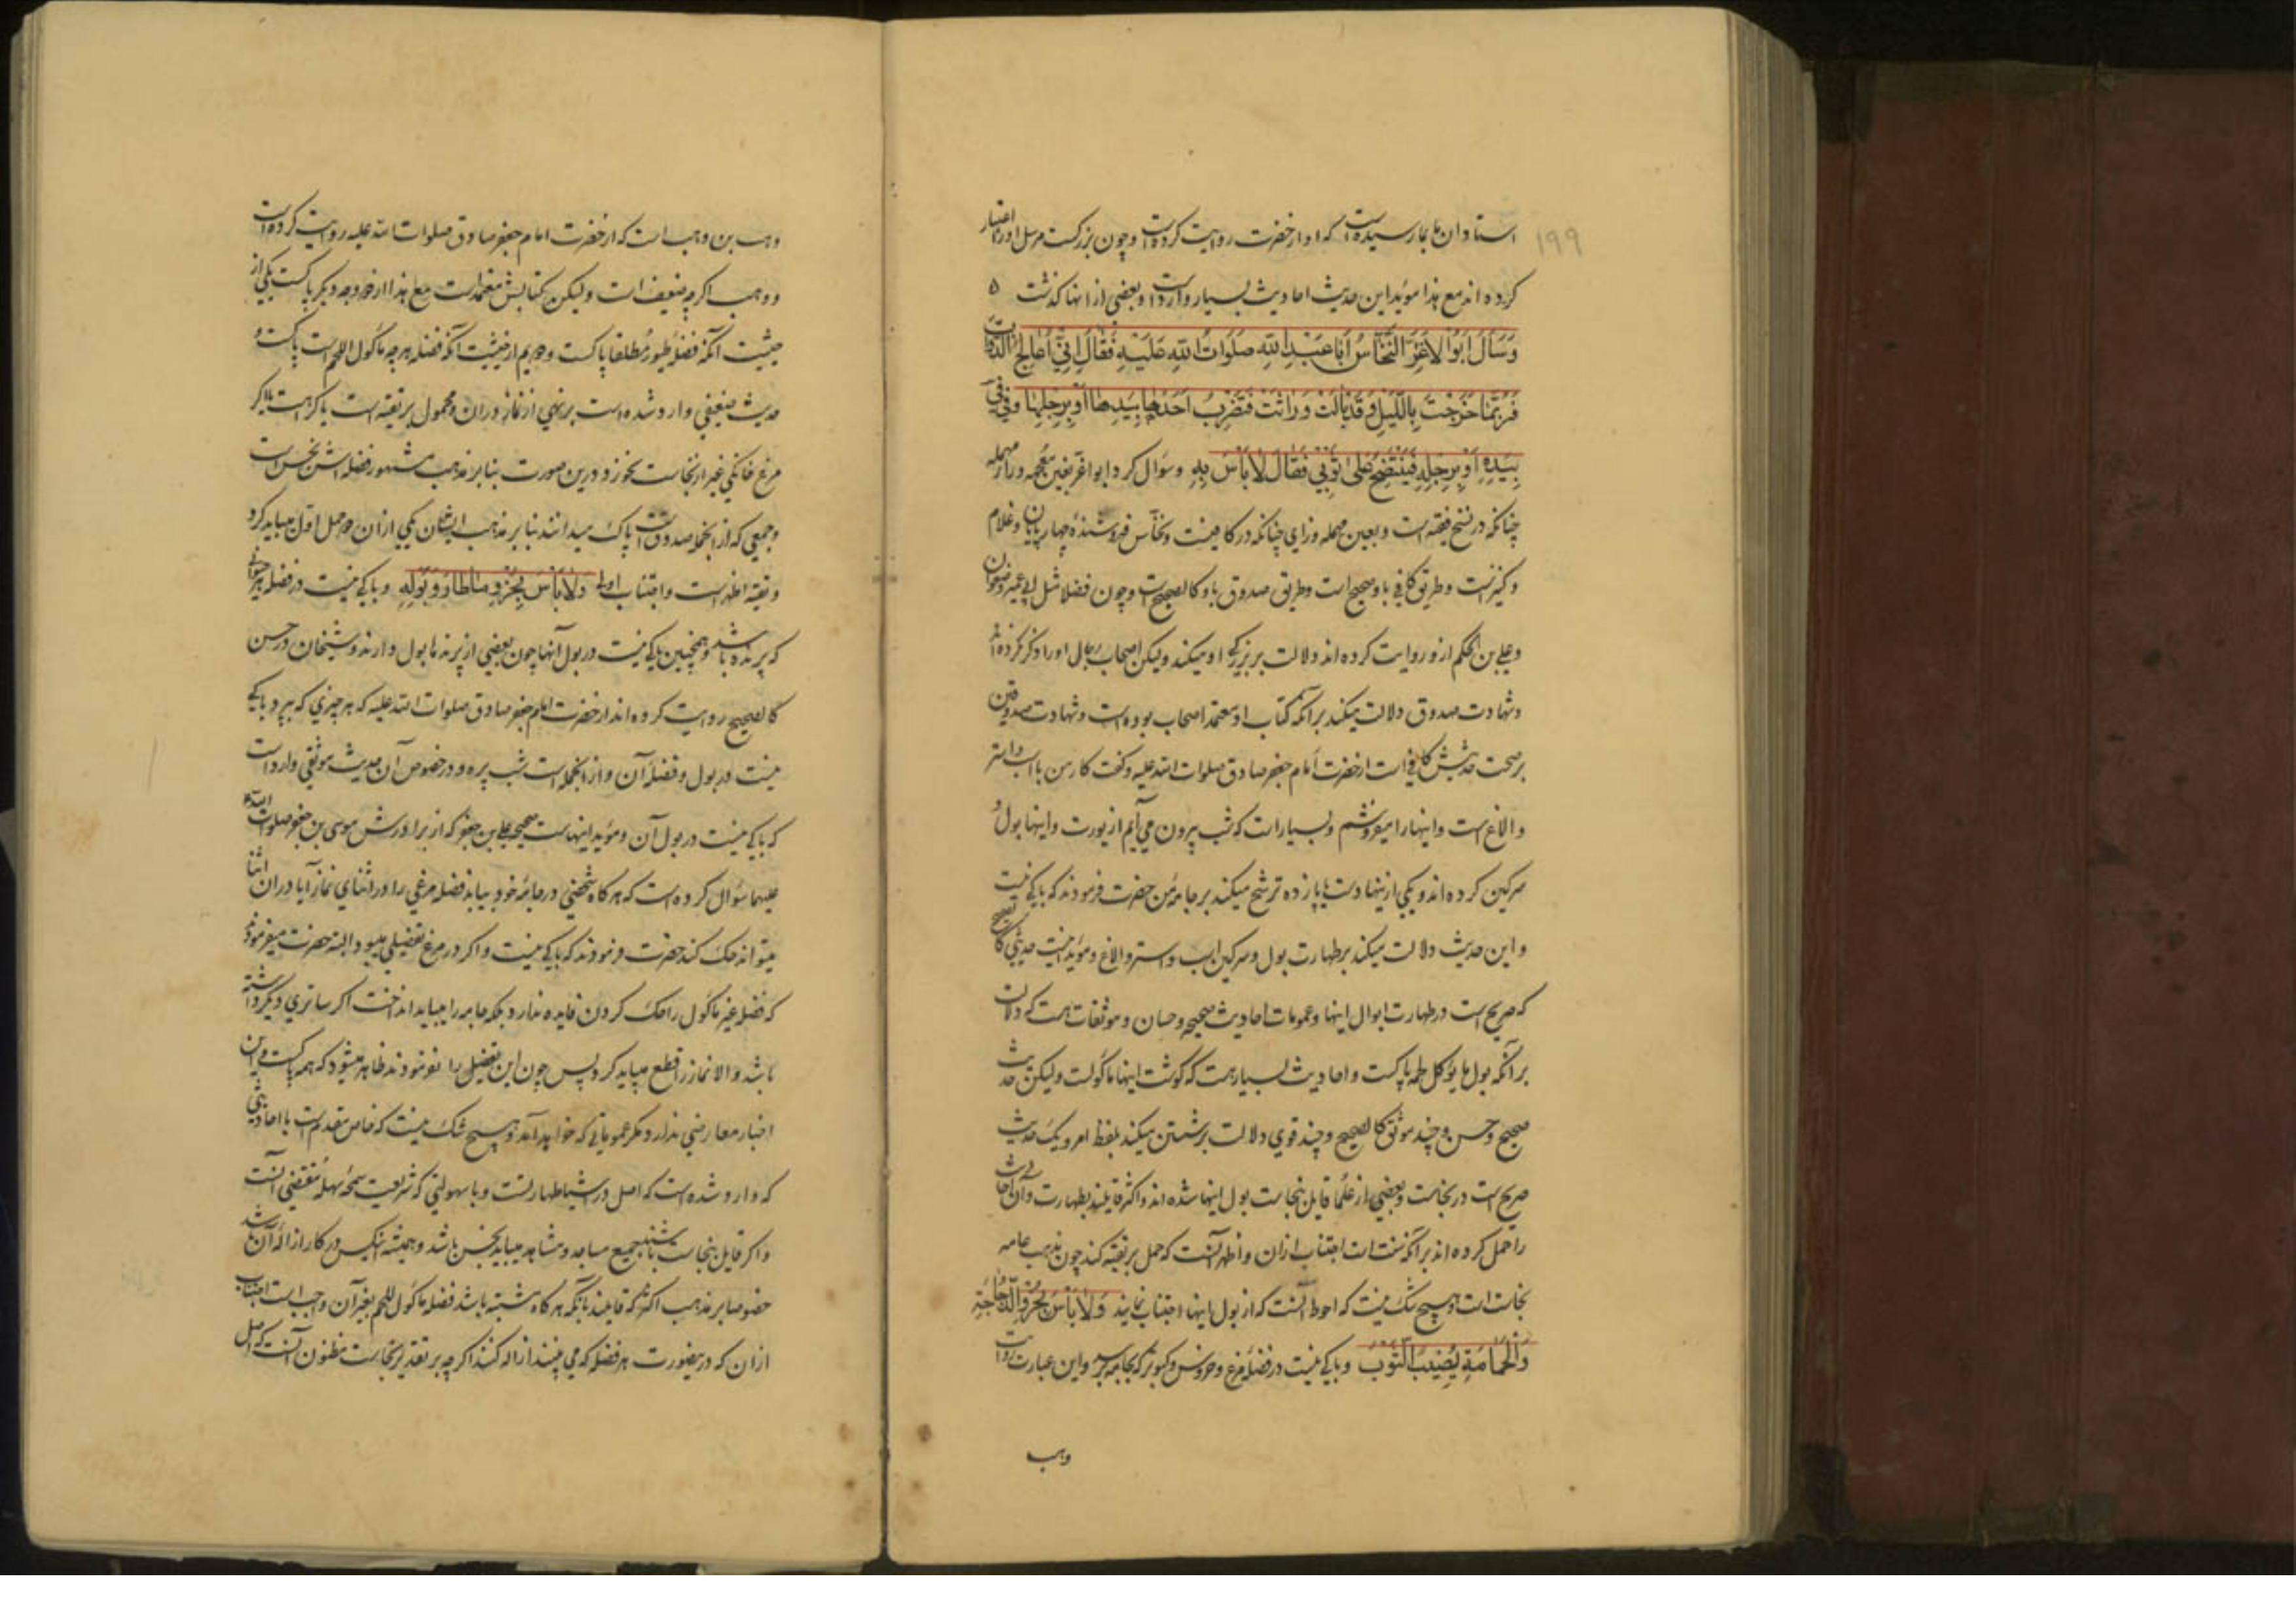 ۱۹۹
استادان ما بما رسیده است که او از حضرت روایت کرده است و چون بزرکست مرسل او را اعتبار
کرده اند مع هذا مؤید این حدیث احادیث بسیار وارد است و بعضی از انها کذشت ٥
وَسَأَلَ اَبُو الاَغَرِّ النَّخّاسُ اَبا عَبْدِ اللّهِ صَلَوَاتُ اللّهِ عَلَیْهِ فَقَالَ اِنّی اُعَالِجُ الدَّوابَّ
فَرُبَّمَا خَرَجْتُ بِاللَّیْلِ وَقَدْ بَالَتْ وَرَاثَتْ فَتَضْرِبُ اَحَدُهَا بِیَدِهَا اَوْ بِرِجْلِهَا
بِیَدِهِ اَوْ بِرِجْلِهِ فَیَنْتَضِحُ عَلی ثَوْبی فَقَالَ لاَ بَأْسَ بِهِ و سؤال کرد ابو اغر بغین معجمه و راء مهمله
چنانکه در نسخ فقیه است و بعین مهمله و زای چنانکه در کافیست و نخّاس فروشندهٔ چهارپایان و غلام
و کنیز است و طریق کافی باو صحیح است و طریق صدوق باو کالصحیح است و چون فضلا مثل ابی عمیر و صفوان
و علی بن الحکم ازو روایت کرده اند دلالت بر بزرکی او میکند و لیکن اصحاب رجال او را ذکر نکرده اند
و شهادت صدوق دلالت میکند بر آنکه کتاب او معتمد اصحاب بوده است و شهادت صدوقین
بر صحت حدیثش کافی است از حضرت امام جعفر صادق صلوات الله علیه و کفت کار من با اسب و استر
و الاغ است و اینها را میفروشم و بسیار است که شب بیرون می آیم از بورت و اینها بول و
سرکین کرده اند و یکی از ینها دست یا پا زده ترشح میکند بر جامهٔ من حضرت فرمودند که باکی نیست
و این حدیث دلالت میکند بر طهارت بول و سرکین اسب و استر و الاغ و مؤید اینست حدیثی کالصحیح
که صریح است در طهارت ابوال اینها و عمومات احادیث صحیحه و حسان و موثقات هست که دلالت
بر آنکه بول ما یؤکل لحمه پاکست و احادیث بسیار هست که کوشت اینها ماکولست و لیکن حدیث
صحیح و حسن و چند موثق کالصحیح و چند قوی دلالت بر شستن میکند بلفظ امر و یک حدیث
صریح است در نجاست و بعضی از علما قایل بنجاست بول اینها شده اند و اکثر قایلند بطهارت و آن احادیث
را حمل کرده اند بر آنکه سنت است اجتناب ازان و اظهر آنست که حمل بر تقیه کند چون مذهب عامه
نجاست است و هیچ شک نیست که احوط آنست که از بول اینها اجتناب نمایند وَلاَ بَأْسَ بِخُرْءِ الدَّجَاجَةِ
وَالْحَمَامَةِ یُصِیبُ الثَّوْبَ و باکی نیست در فضلهٔ مرغ و خروس و کبوتر که بجامه برسد و این عبارت روایت
وهب
وهب بن وهب است که از حضرت امام جعفر صادق صلوات الله علیه روایت کرده است
و وهب اکرچه ضعیف است و لیکن کتابش معتمد است مع هذا از دو وجه دیکر پاکست یکی از
حیثیت آنکه فضلهٔ طیور مطلقا پاکست و دویم از حیثیت آنکه فضله هر چه ماکول اللحم است پاکست و
حدیث ضعیفی وارد شده است بر نهی از نماز دران و محمول بر تقیه است یا کراهت یا اکر
مرغ خانکی غیر از نجاست نخورد و درین صورت بنا بر مذهب مشهور فضله اش نجس است
و جمعی که از انجمله صدوق است پاک میدانند بنا بر مذهب ایشان یکی ازان دو حمل اول میباید کرد
و تقیه اظهر است و اجتناب اولی وَلاَ بَأْسَ بِخُرْءِ مَا طَارَ وَ بَوْلِهِ و باکی نیست در فضله هر حیوانی
که پرنده باشد و همچنین باکی نیست در بول آنها چون بعضی از پرندها بول دارند و شیخان در حسن
کالصحیح روایت کرده اند از حضرت امام جعفر صادق صلوات الله علیه که هر چیزی که بپرد باکی
نیست در بول و فضلهٔ آن و از انجمله است شب پره و در خصوص آن حدیث موثقی وارد است
که باکی نیست در بول آن و مؤید اینهاست صحیحه علی بن جعفر که از برادرش موسی بن جعفر صلوات الله
علیهما سؤال کرده است که هر کاه شخصی در جامهٔ خود بیابد فضله مرغی را در اثنای نماز آیا دران اثنا
میتواند حک کند حضرت فرمودند که باکی نیست و اکر در مرغ تفصیلی میبود البته حضرت میفرمودند
که فضله غیر ماکول را حک کردن فایده ندارد بلکه جامه را میباید انداخت اکر ساتری دیکر داشته
باشد و الا نماز را قطع میباید کرد پس چون این تفصیل را نفرمودند ظاهر میشود که همه پاکست و این
اخبار معارضی ندارد مکر عموماتی که خواهد آمد و هیچ شک نیست که خاص مقدم است با احادیثی
که وارد شده است که اصل در اشیا طهارتست و با سهولتی که شریعت سمحهٔ سهله مقتضی آنست
و اکر قایل بنجاست باشند جمیع مساجد و مشاهد میباید نجس باشد و همیشه انیکس در کار ازالهٔ آن باشد
خصوصا بر مذهب اکثر که قایلند بآنکه هر کاه مشتبه باشد فضله ماکول اللحم بغیر آن واجب است اجتناب
ازان که درینصورت هر فضله که می بینند ازاله کنند اکرچه بر تقدیر نجاست مظنون آنست که اصل